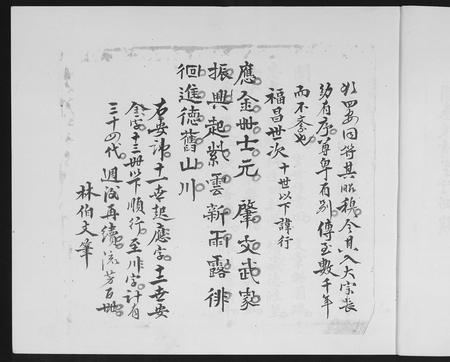 四安同符其昭穆令其入大宗長
幼有序尊卑有别傳至數千年
而不紊也
福昌世次 十世以下諱行
應金世士元 肇文武家
振興起紫雲新雨露徘
徊進德舊山川
右安諱十一世起應字十二世安
金字十三世以下順行至川字計有
三十四代週後再續流芳百世
林伯文筆